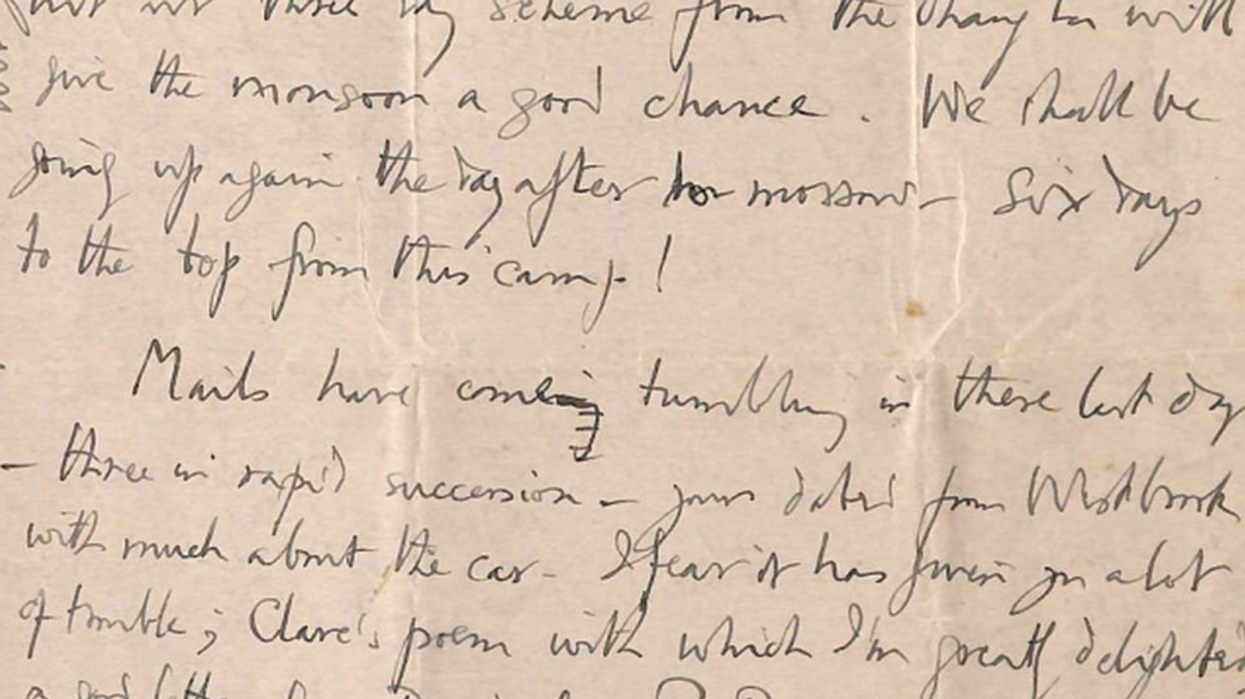 but our three day scheme from the Chang La will
give the monsoon a good chance. We shall be
going up again the day after to morrow – Six days
to the top from this camp!
Mails have come tumbling in these last days
– three in rapid succession – yours dated from Westbrook
with much about the car – I fear it has given you a lot
of trouble; Clare's poem with which I'm greatly delighted
a good letter from